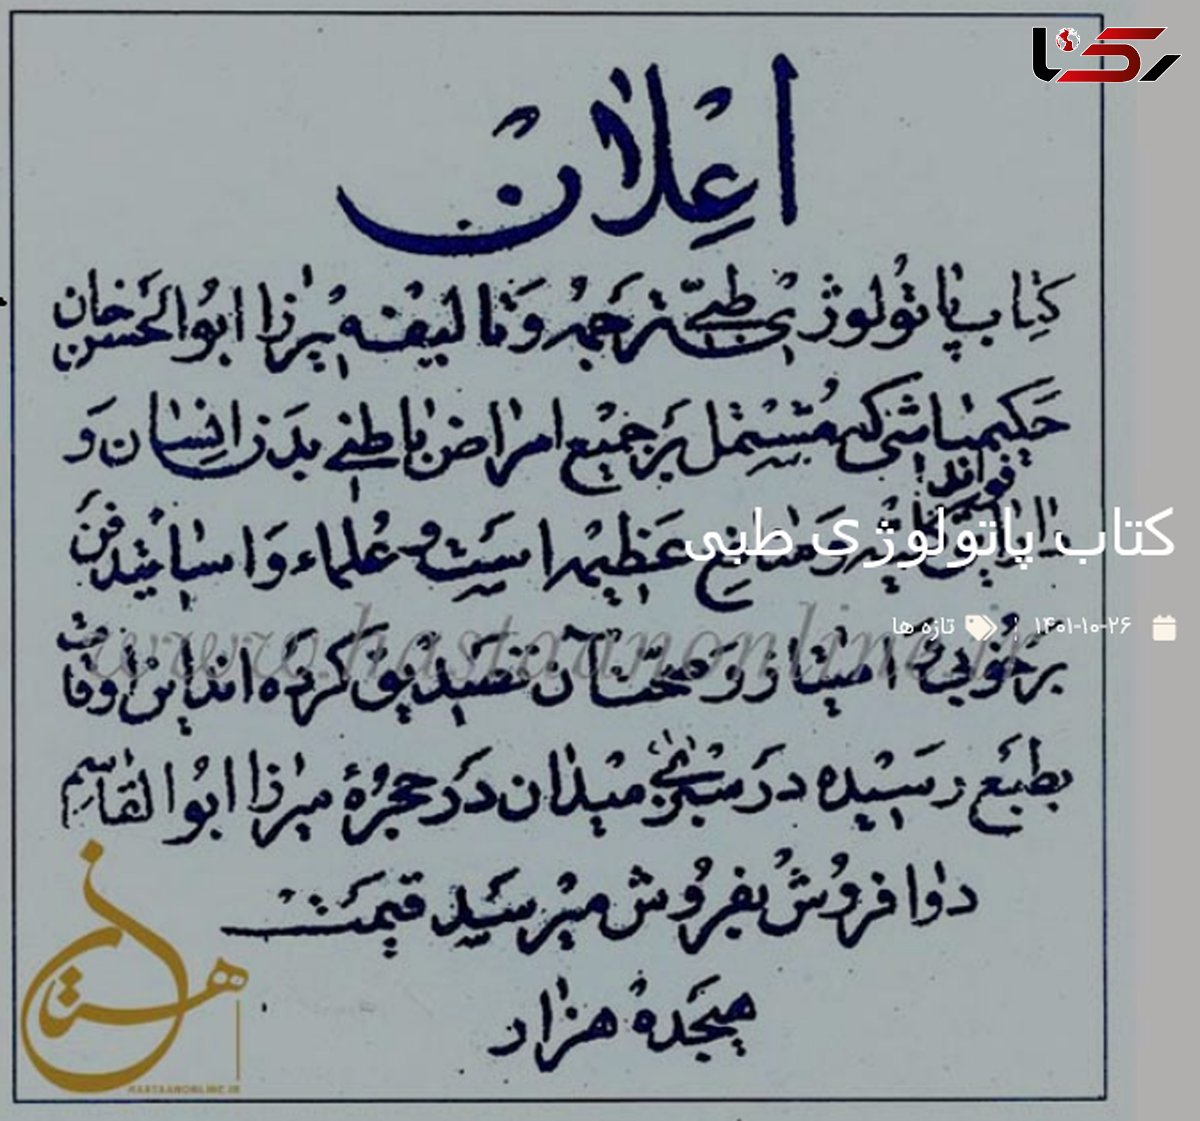 رکنا
اعلان
کتاب پاتولوژی طبی ترجمه و تالیف میرزا ابوالحسن خان
حکیمباشی که مشتمل بر جمیع امراض باطنی بدن انسان و
دارای فواید کثیره و منافع عظیمه است و علماء و اساتید فن
کتاب پاتولوژی طبی
۱۴۰۱-۱۰-۲۶ تازه ها
www.hastaanonline.ir
بر خوبی و امتیاز و صحت آن تصدیق کرده اند این اوقات
بطبع رسیده در میدان در حجره میرزا ابوالقاسم
دوا فروش بفروش میرسد قیمت
هیجده هزار
هستان
HASTAANONLINE.IR